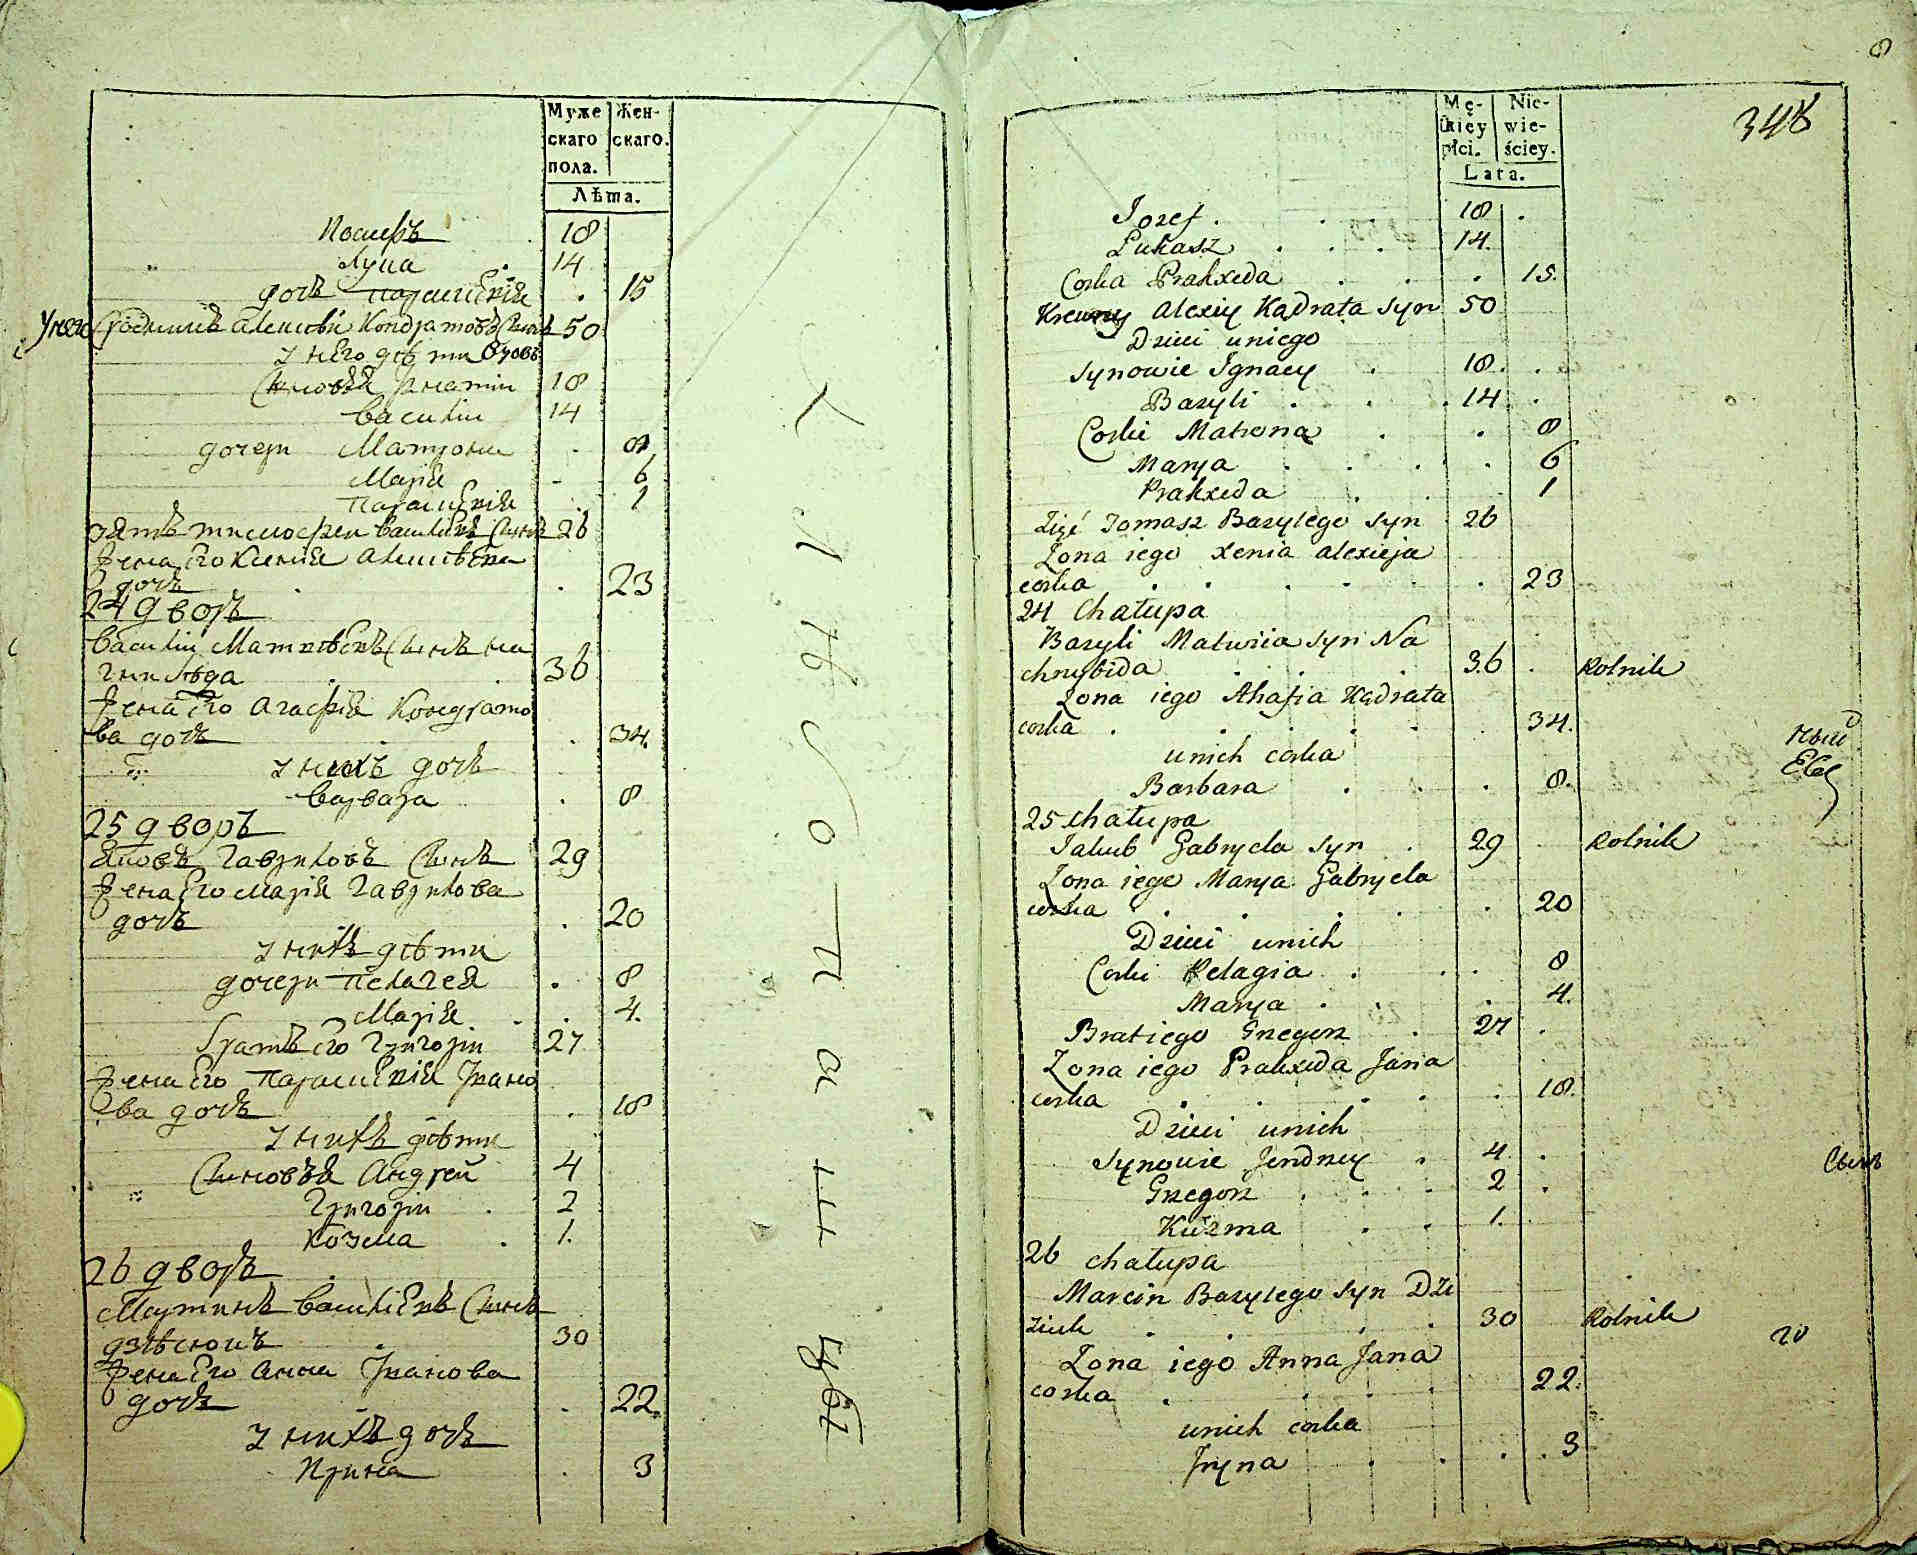 Муже
скаго
пола.
Жен-
скаго.
Лѣта.
Иосифъ 18
Лука 14
дочь Параскѣвія 15
У него Сродникъ Алексѣй Кондратовъ Сынъ 50
У него дѣти
Сыновья Игнатій 18
Василій 14
дочери Матрона 8
Марія 6
Параскѣвія 1
зять Тимофей Васильевъ Сынъ 26
Жена Его Ксенія Алексѣева
дочь 23
24 дворъ
Василій Матвѣевъ Сынъ На
гнибѣда 36
Жена Его Агафія Кондрато
ва дочь 34.
У нихъ дочь
Варвара 8
25 дворъ
Яковъ Гавриловъ Сынъ 29
Жена Его Марія Гаврилова
дочь 20
У нихъ дѣти
дочери Пелагея 8
Марія 4.
братъ Его Григорій 27
Жена Его Параскѣвія Ивано
ва дочь 18
У нихъ дѣти
Сыновья Андрей 4
Григорій 2
Козма 1.
26 дворъ
Мартинъ Васильевъ Сынъ
30
Жена Его Анна Иванова
дочь 22.
У нихъ дочь
Ирина 3
Х
л
ѣ
б
о
п
а
ш
цы
8
348
Mę-
skiey
płci.
Nie-
wie-
ściey.
Lata.
Jozef. 18
Łukasz 14.
Corka Prakxeda 15.
Krewny Alexiy Kądrata Syn 50
Dzieci uniego
Synowie Ignacy 18.
Bazyli 14
Corki Matrona 8
Marya 6
Prakxeda 1
Zięć Tomasz Bazylego Syn 26
Zona iego Xenia Alexieja
corka 23
24 Chałupa
Bazyli Matwiia Syn Na
chnybida 36 Rolnik
Zona iego Ahafia Kądrata
corka 34.
unich corka
Barbara 8.
25 chałupa
Jakub Gabryela Syn 29 Rolnik
Zona iego Marya Gabryela
corka 20
Dzieci unich
Corki Pelagia 8
Marya 4.
Brat iego Gregorz 27
Zona iego Prakxeda Jana
corka 18.
Dzieci unich
Synowie Jendrzey 4
Gregorz 2
Kuzma 1.
26 chałupa
Marcin Bazylego Syn Dzi
ziuk 30 Rolnik
Zona iego Anna Jana
corka 22.
unich corka
Jryna 3
Сынъ
го